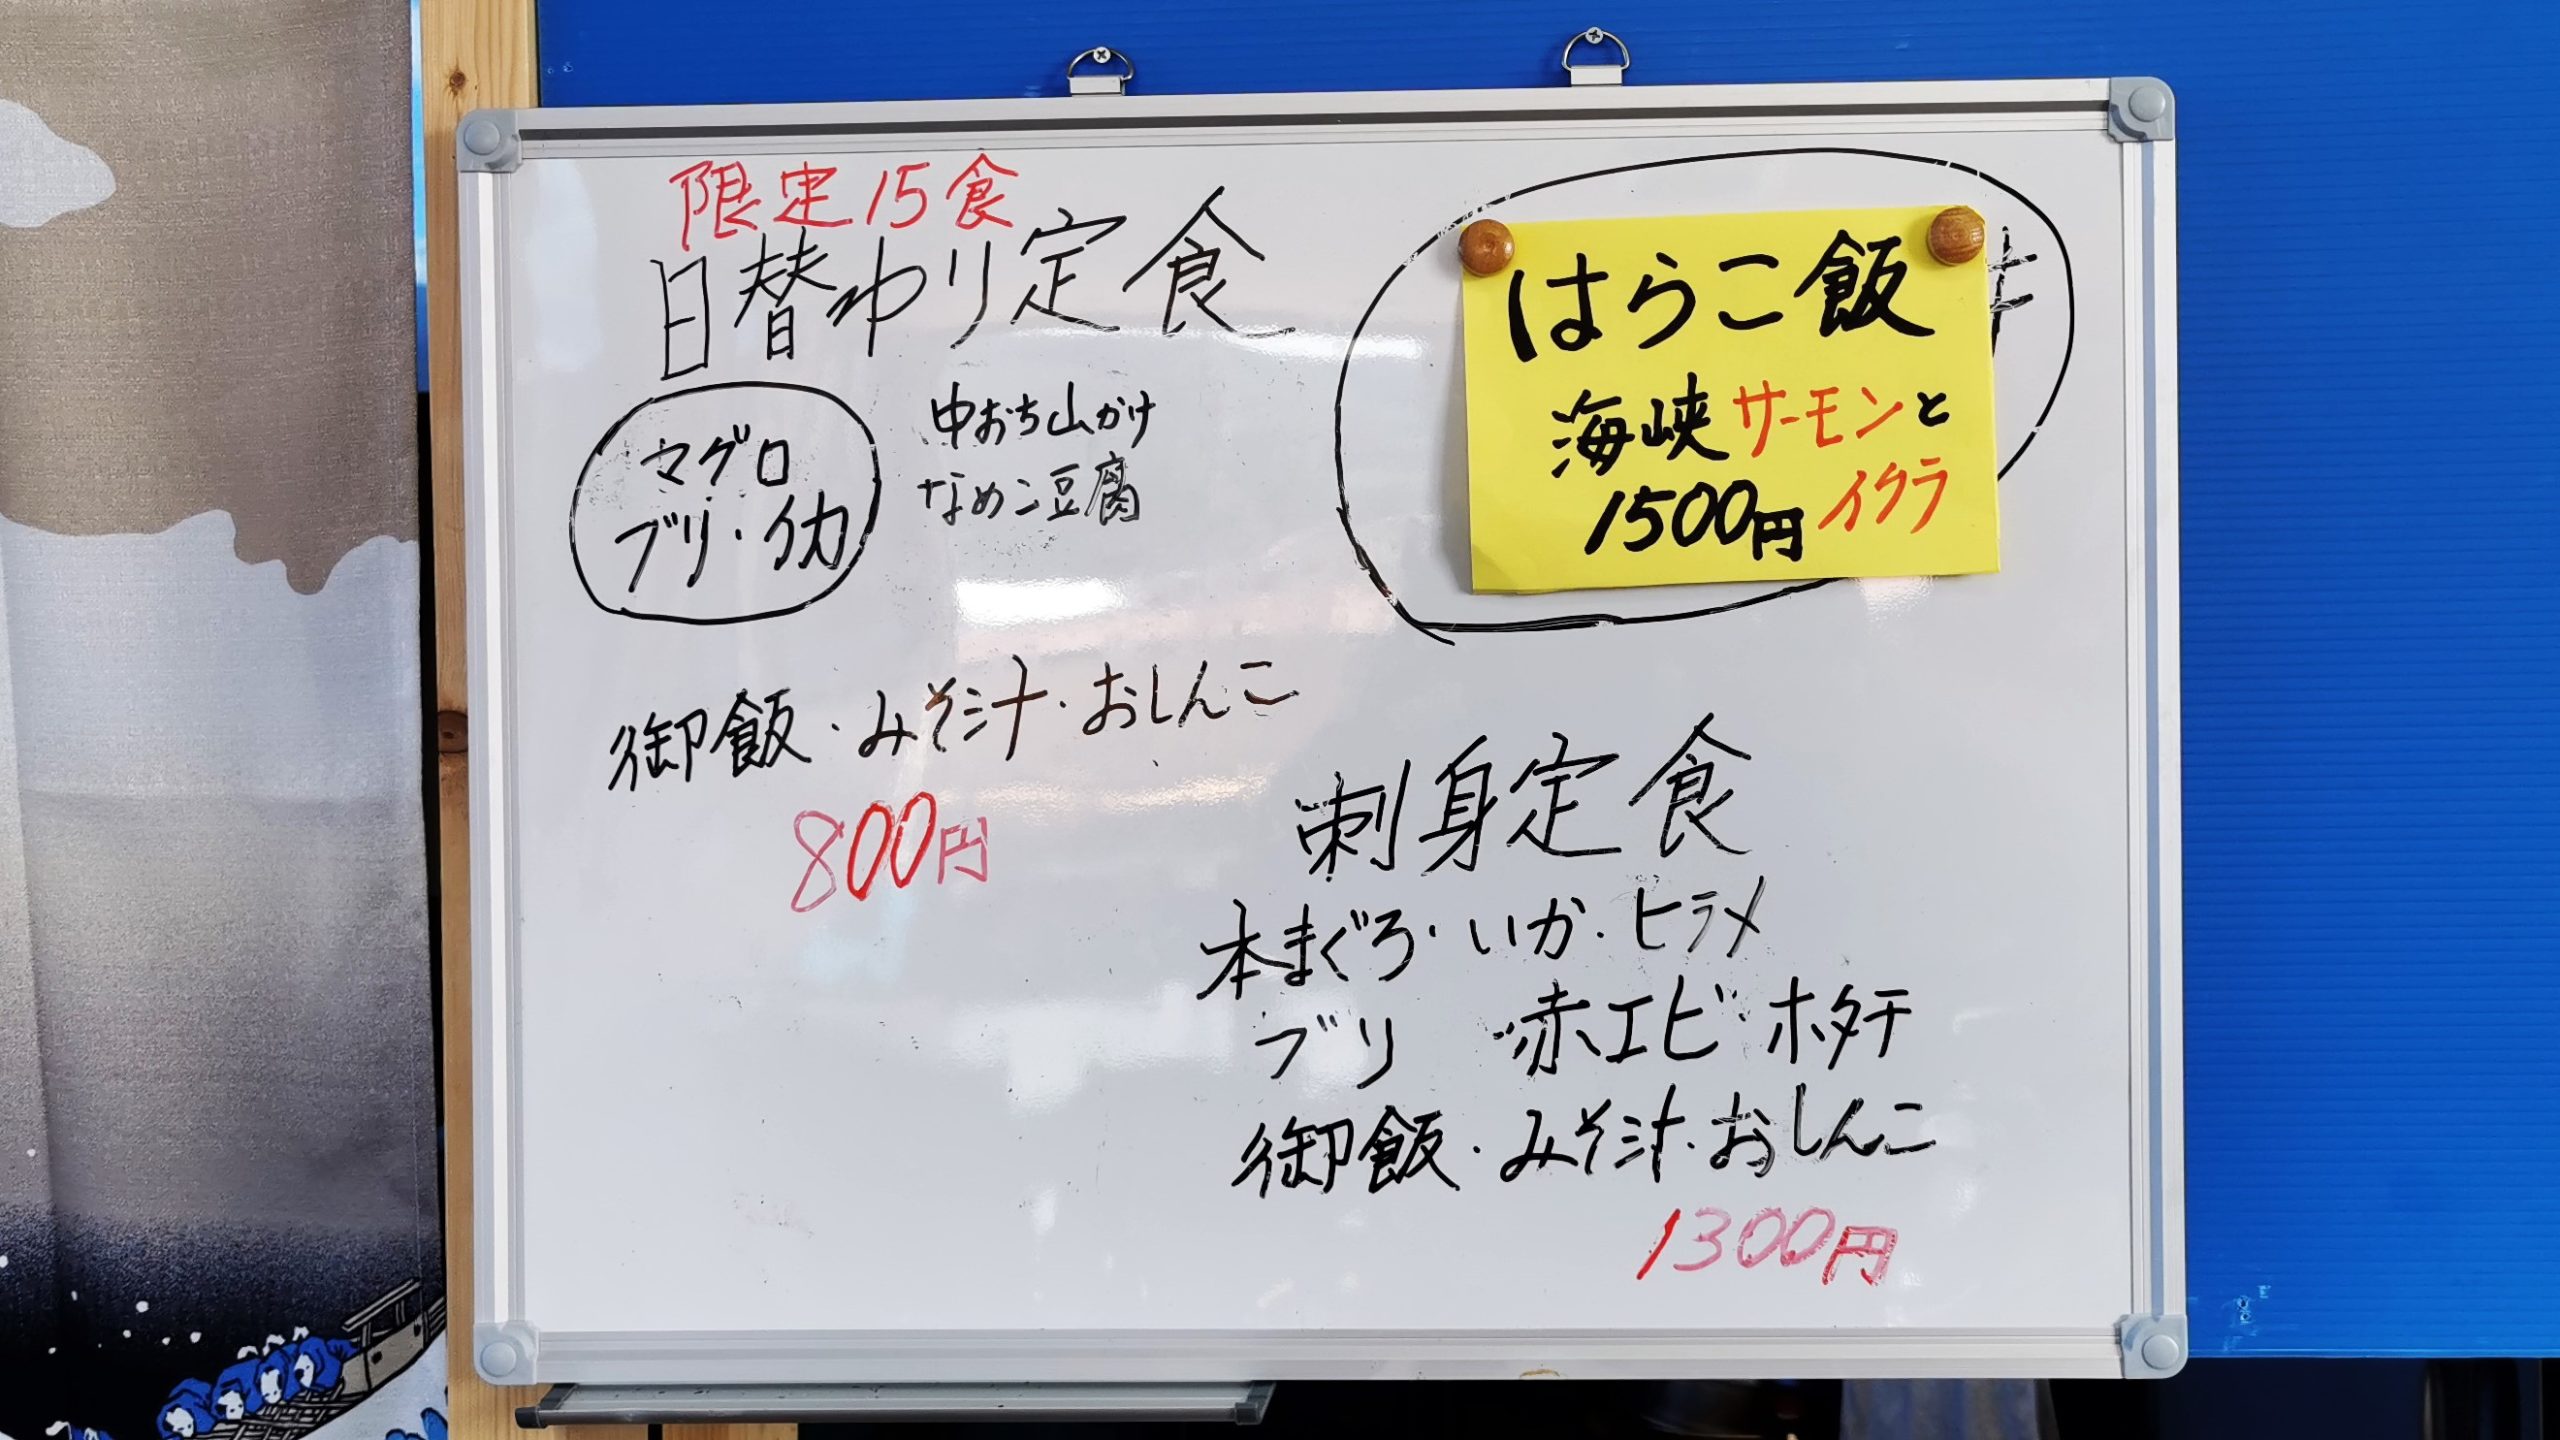 限定15食
日替わり定食
マグロ
ブリ・イカ
中おち山かけ
なめこ豆腐
御飯・みそ汁・おしんこ
800円
はらこ飯
海峡サーモンと
イクラ
1500円
刺身定食
本まぐろ・いか・ヒラメ
ブリ ・赤エビ・ホタテ
御飯・みそ汁・おしんこ
1300円